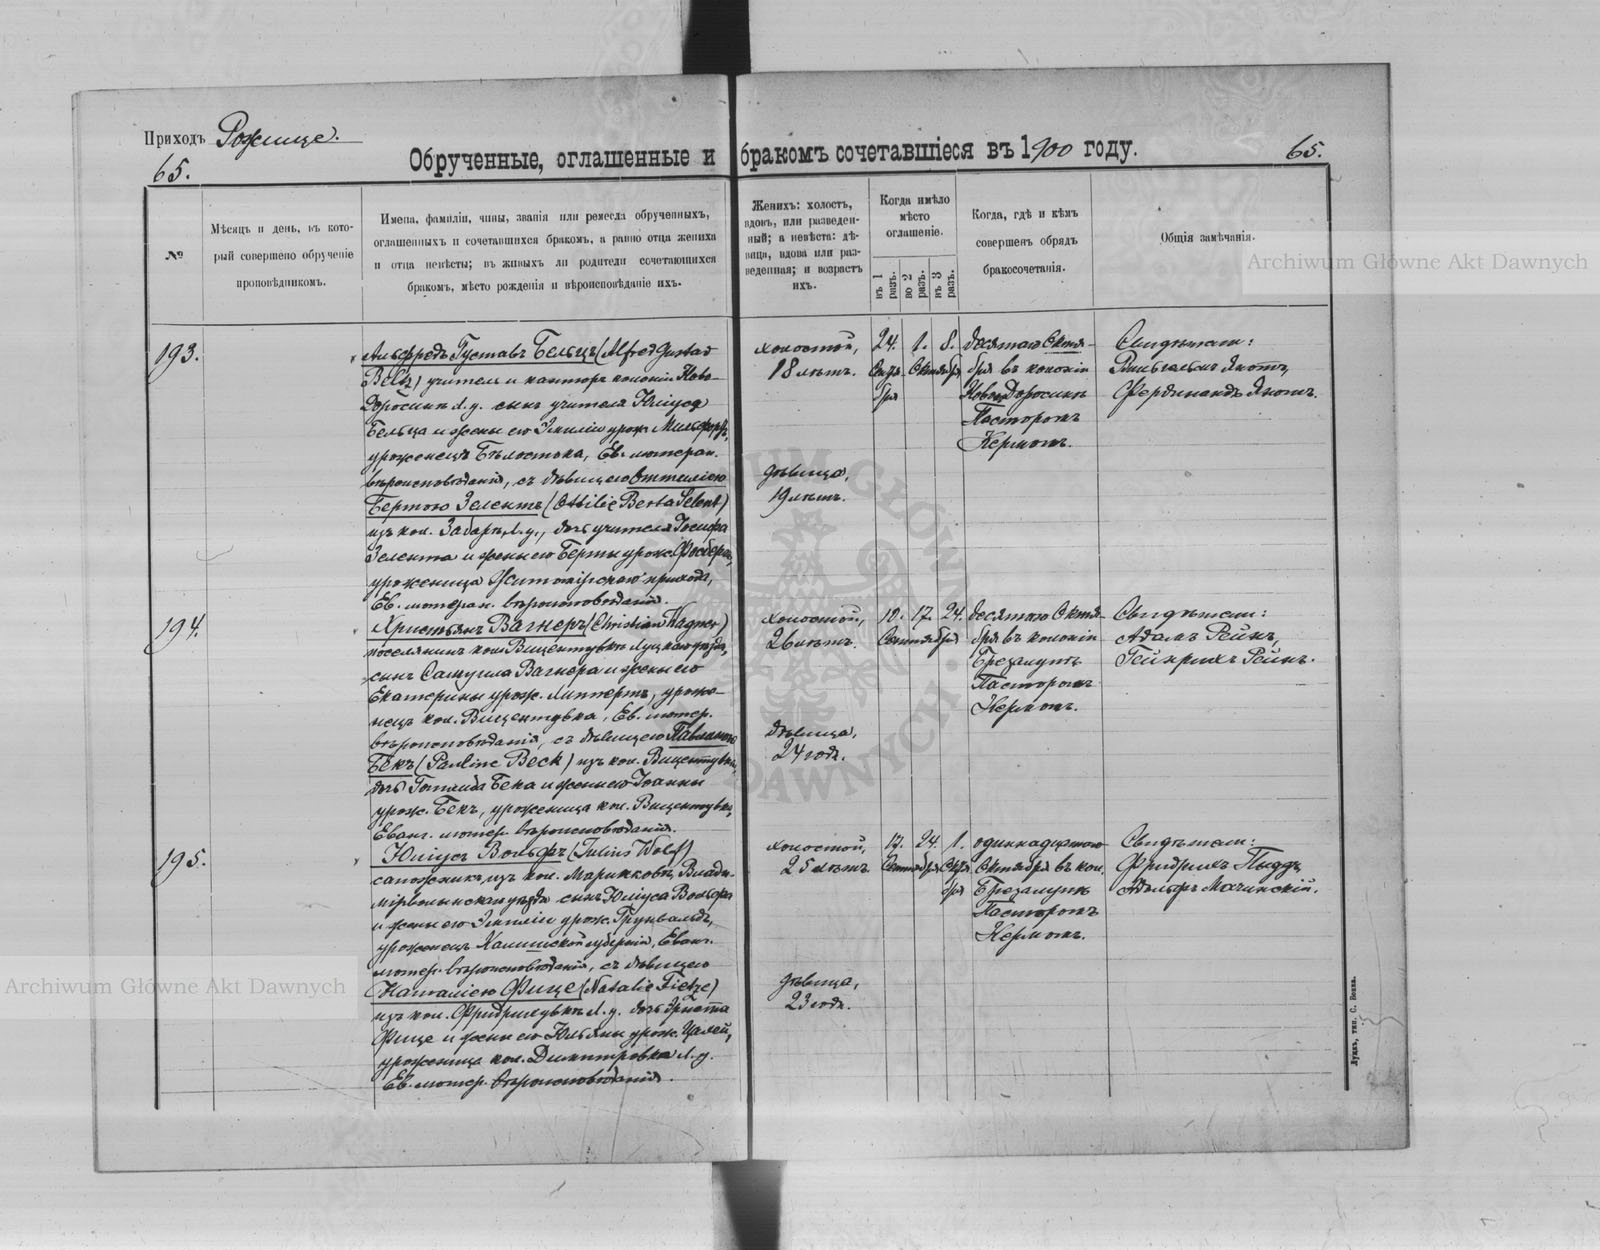 Приходъ Рожище.
65.
Обрученные, оглашенные и бракомъ сочетавшіеся въ 1900 году.
65.
№
Мѣсяцъ и день, въ кото-
рый совершено обрученіе
проповѣдникомъ.
Имена, фамиліи, чины, званія или ремесла обрученныхъ,
оглашенныхъ и сочетавшихся бракомъ, а равно отца жениха
и отца невѣсты; въ живыхъ ли родители сочетающихся
бракомъ, мѣсто рожденія и вѣроисповѣданіе ихъ.
Женихъ: холостъ,
вдовъ, или разведен-
ный; а невѣста: дѣ-
вица, вдова или раз-
веденная; и возрастъ
ихъ.
Когда имѣло
мѣсто
оглашеніе.
въ 1 разъ.
во 2 разъ.
въ 3 разъ.
Когда, гдѣ и кѣмъ
совершенъ обрядъ
бракосочетанія.
Общія замѣчанія.
193.
Альфредъ Густавъ Бельцъ (Alfred Gustav
Belz) учитель и канторъ колоніи Ново-
Доросинъ Л. у. сынъ учителя Юліуса
Бельца и жены его Эмиліи урож.
уроженецъ Бѣлостока, Ев. лютеран.
вѣроисповѣданія, съ дѣвицею Оттиліею
Бертою Зелентъ (Ottilie Berta Selent)
изъ кол. Л. у., дочь учителя Іосифа
Зелента и жены его Берты урож.
уроженица Житомірскаго прихода,
Ев. лютеран. вѣроисповѣданія.
холостой,
18 лѣтъ.
дѣвица,
19 лѣтъ.
24. 1. 8.
Сентя- Октября
бря
десятаго Октя-
бря въ колоніи
Новый Доросинъ
Пасторомъ
Кермомъ.
Свидѣтели:
Вильгельмъ Якотъ,
Фердинандъ Якотъ.
194.
Христьянъ Вагнеръ (Christian Wagner)
поселянинъ кол. Вицентувка Луцкаго уѣзда,
сынъ Самуила Вагнера и жены его
Екатерины урож. Липпертъ, уроже-
нецъ кол. Вицентувка, Ев. лютер.
вѣроисповѣданія, съ дѣвицею Павлиною
Бекъ (Pauline Beck) изъ кол. Вицентувки,
дочь Готлиба Бека и жены его Іоанны
урож. Бекъ, уроженица кол. Вицентувка,
Еванг. лютер. вѣроисповѣданія.
холостой,
26 лѣтъ.
дѣвица,
24 года.
10. 17. 24.
Сентября
десятаго Октя-
бря въ колоніи
Брезалупъ
Пасторомъ
Кермомъ.
Свидѣтели:
Адамъ Рейнъ,
Гейнрихъ Рейнъ.
195.
Юліусъ Вольфъ (Julius Wolf)
сапожникъ, изъ кол. Маринковъ, Влади-
мірволынскаго уѣзда сынъ Юліуса Вольфа
и жены его Эмиліи урож. Грунвальдъ,
уроженецъ Калишской губерніи, Еванг.
лютер. вѣроисповѣданія, съ дѣвицею
Наталіею Фице (Natalie Fietze)
изъ кол. Фридриховка Л. у. дочь Эрнста
Фице и жены его Юльяны урож. Цалей,
уроженица кол. Димитровка Л. у.
Ев. лютер. вѣроисповѣданія.
холостой,
25 лѣтъ
дѣвица,
23 года.
17. 24. 1.
Сентября Октя-
бря
одиннадцатаго
Октября въ кол.
Брезалупъ
Пасторомъ
Кермомъ.
Свидѣтели:
Фридрихъ Пуддъ,
Адольфъ Мачинскій.
Луцкъ, тип. С. Бокка.
Archiwum Główne Akt Dawnych
Archiwum Główne Akt Dawnych